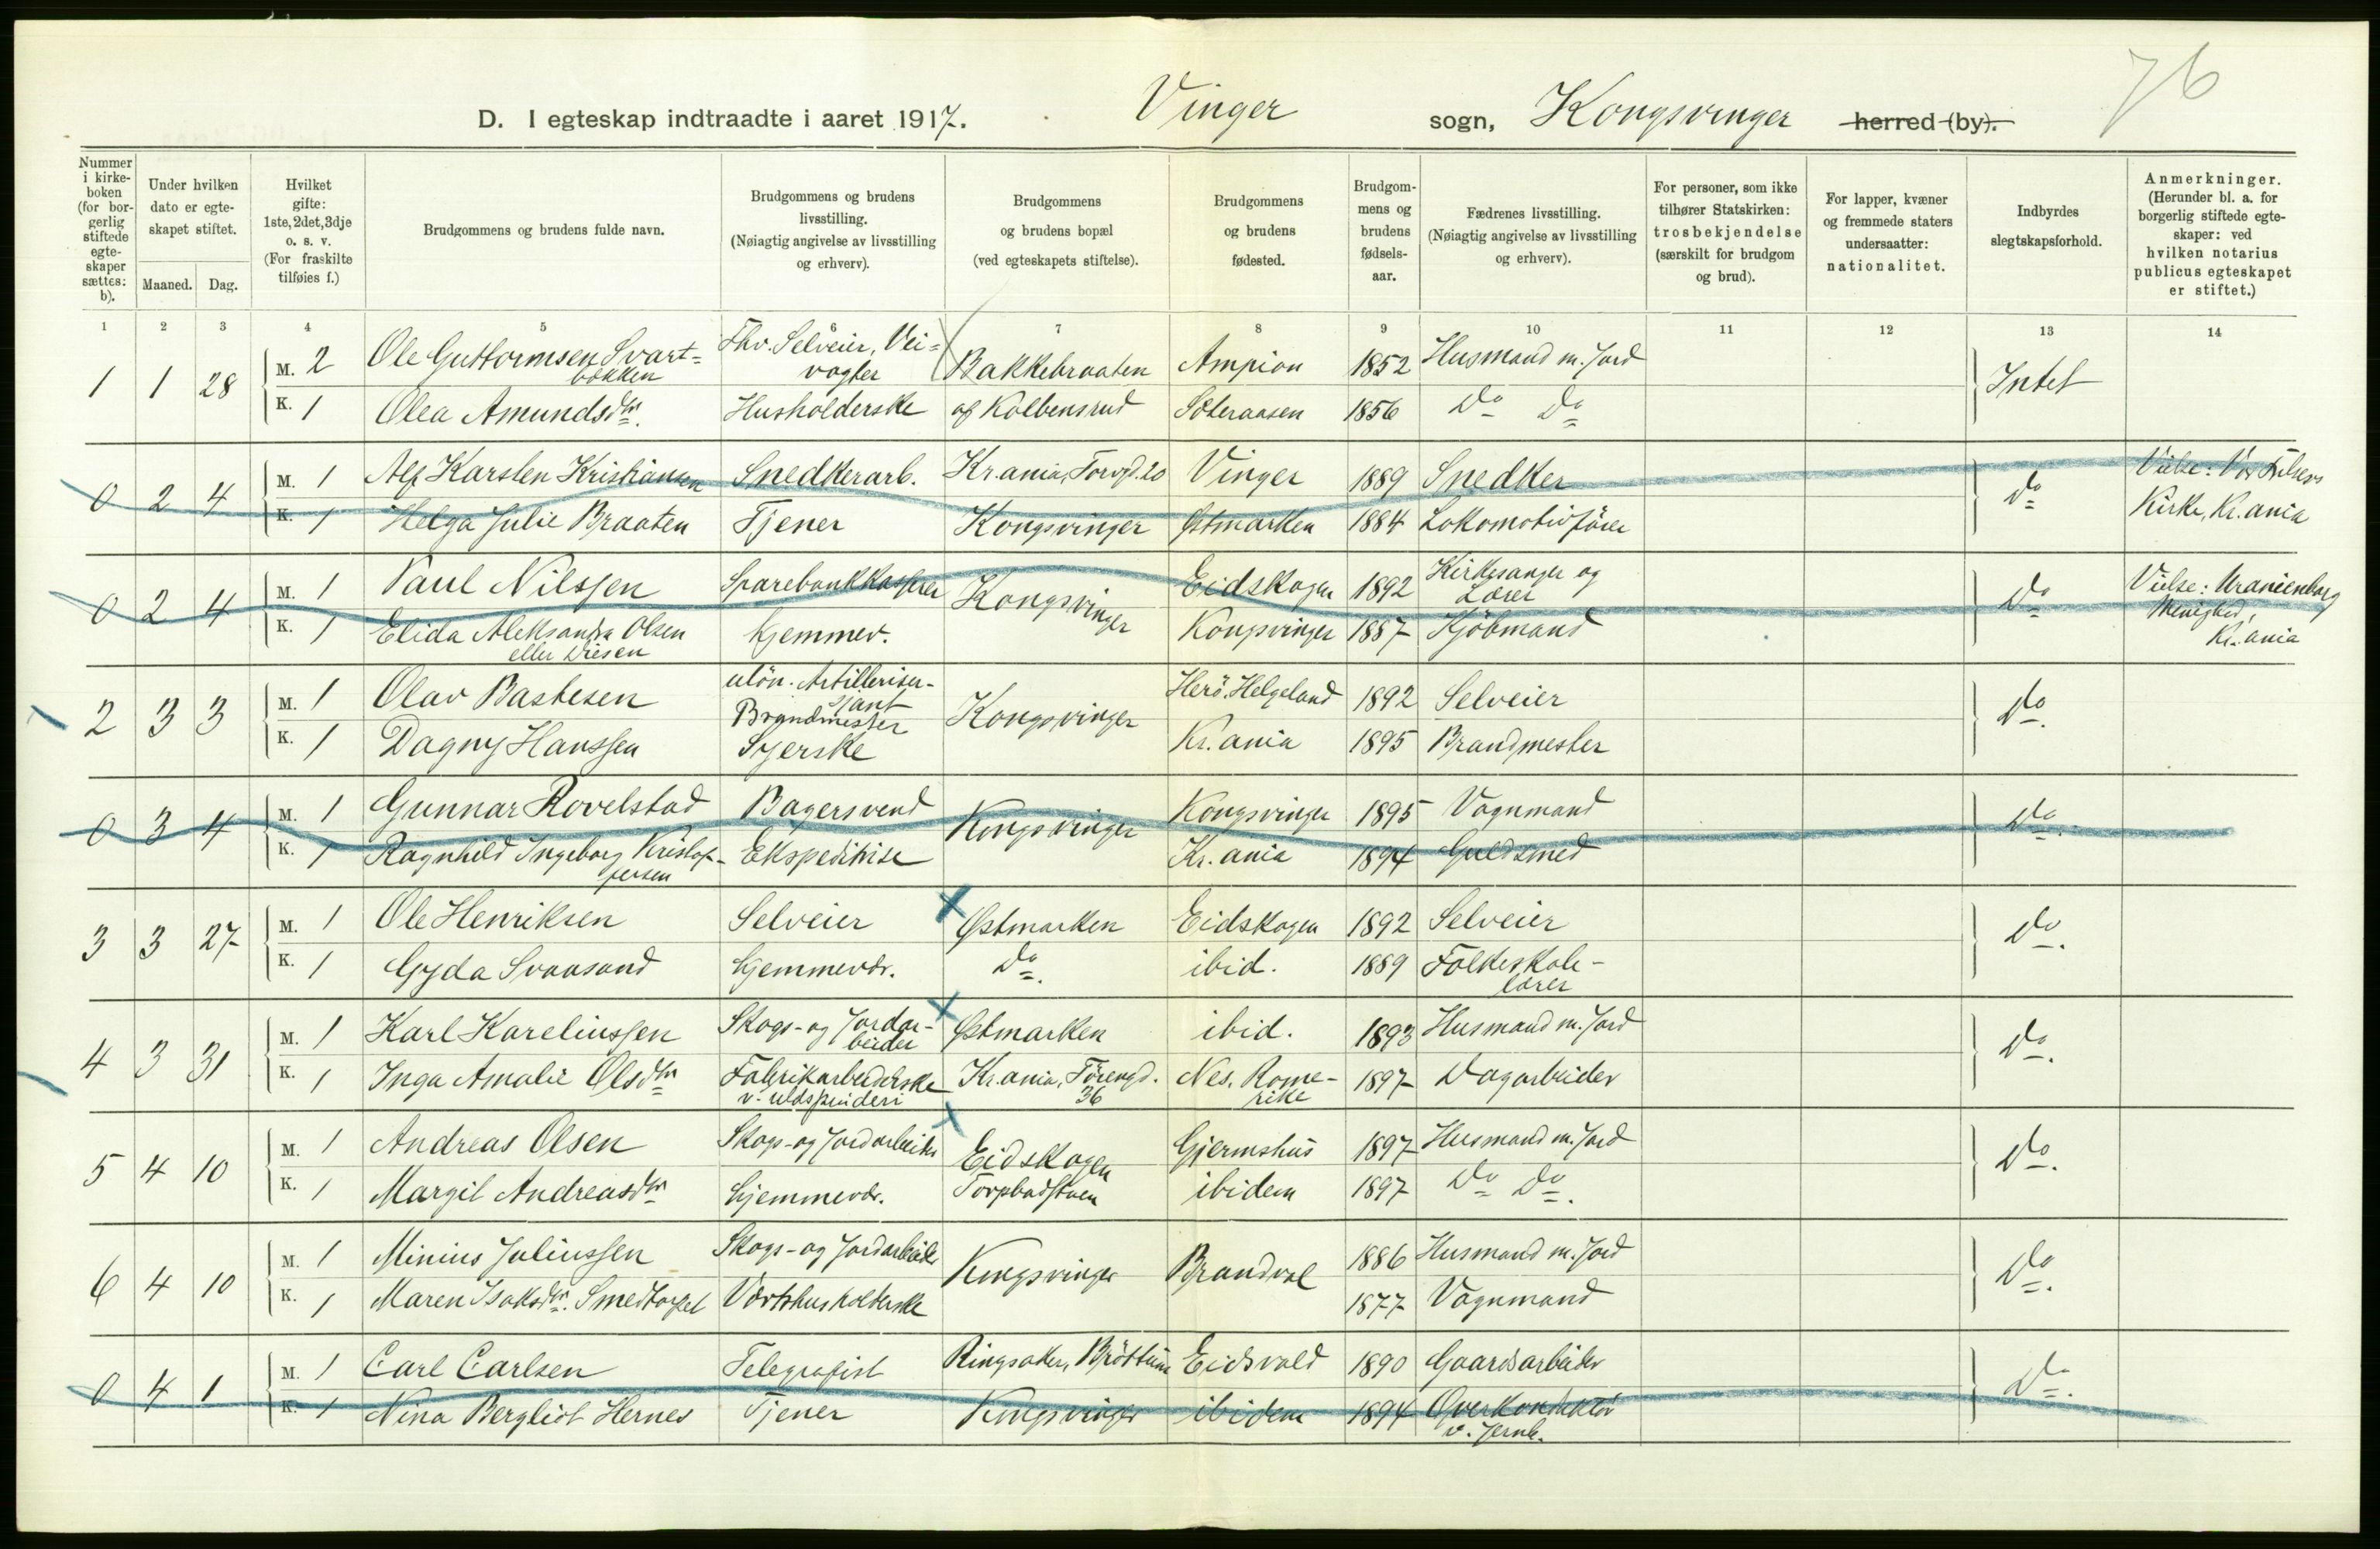 76
D. I egteskap indtraadte i aaret 1917. Vinger sogn, Kongsvinger herred (by).
Nummer i kirkeboken (for borgerlig stiftede egteskaper sættes: b).
Under hvilken dato er egteskapet stiftet.
Maaned. Dag.
Hvilket gifte: 1ste, 2det, 3dje o. s. v. (For fraskilte tilføies f.)
Brudgommens og brudens fulde navn.
Brudgommens og brudens livsstilling. (Nøiagtig angivelse av livsstilling og erhverv).
Brudgommens og brudens bopæl (ved egteskapets stiftelse).
Brudgommens og brudens fødested.
Brudgommens og brudens fødselsaar.
Fædrenes livsstilling. (Nøiagtig angivelse av livsstilling og erhverv).
For personer, som ikke tilhører Statskirken: trosbekjendelse (særskilt for brudgom og brud).
For lapper, kvæner og fremmede staters undersaatter: nationalitet.
Indbyrdes slegtskapsforhold.
Anmerkninger. (Herunder bl. a. for borgerlig stiftede egteskaper: ved hvilken notarius publicus egteskapet er stiftet.)
1 2 3 4 5 6 7 8 9 10 11 12 13 14
1 1 28 M. 2 Ole Guttormsen Svartbækken Fhv. Selveier, Veivogter Bakkebraaten Ampian 1852 Husmand m. Jord Intet
K. 1 Olea Amundsdtr. Husholderske af Kolbensrud Sæteraasen 1856 Do Do
0 2 4 M. 1 Alf Karsten Kristiansen Snedkerarb. Kr.ania, Torvgd. 20 Vinger 1889 Snedker Do Vielse: Vor Frelsers
K. 1 Helga Julie Braaten Tjener Kongsvinger Østmarken 1884 Lokomotivfører Kirke, Kr.ania
0 2 4 M. 1 Paul Nilssen Sparebankkasserer Kongsvinger Eidskogen 1892 Kirkesanger og Lærer Do Vielse: Uranienborg
K. 1 Elida Aleksandra Olsen eller Diesen hjemmev. Kongsvinger 1887 Kjøbmand Menighed, Kr.ania
2 3 3 M. 1 Olav Bastesen uløn. Artillerisersjant Kongsvinger Herø, Helgeland 1892 Selveier Do.
Brandmester
K. 1 Dagny Hanssen Syerske Kr.ania 1895 Brandmester
0 3 4 M. 1 Gunnar Rovelstad Bagersvend Kongsvinger Kongsvinger 1895 Vognmand Do.
K. 1 Ragnhild Ingeborg Kristoffersen Ekspeditrise Kr.ania 1894 Guldsmed
3 3 27 M. 1 Ole Henriksen Selveier Østmarken Eidskogen 1892 Selveier Do.
K. 1 Gyda Svaasand hjemmevær. Do. ibid. 1889 Folkeskolelærer
4 3 31 M. 1 Karl Kareliussen Skogs- og Jordarbeider Østmarken ibid. 1893 Husmand m. Jord Do.
K. 1 Inga Amalie Olsdtr Fabrikarbeiderske v. uldspinderi Kr.ania, 36 Nes, Romerike 1897 Dagarbeider
5 4 10 M. 1 Andreas Olsen Skogs- og Jordarbeider Eidskogen Gjermshus 1897 Husmand m. Jord Do.
K. 1 Margit Andreasdtr hjemmevær. ibidem 1897 Do Do.
6 4 10 M. 1 Minius Juliussen Skogs- og Jordarbeider Kongsvinger Brandval 1886 Husmand m. Jord Do.
K. 1 Maren Isaksdtr. Smedtorpet Værtshusholderske 1877 Vognmand
0 4 1 M. 1 Carl Carlsen Telegrafist Ringsaker, Brøttum Eidsvold 1890 Gaardsarbeider Do.
K. 1 Nina Bergliot Hernes Tjener Kongsvinger ibidem 1894 Overkonduktør v. Jernb.